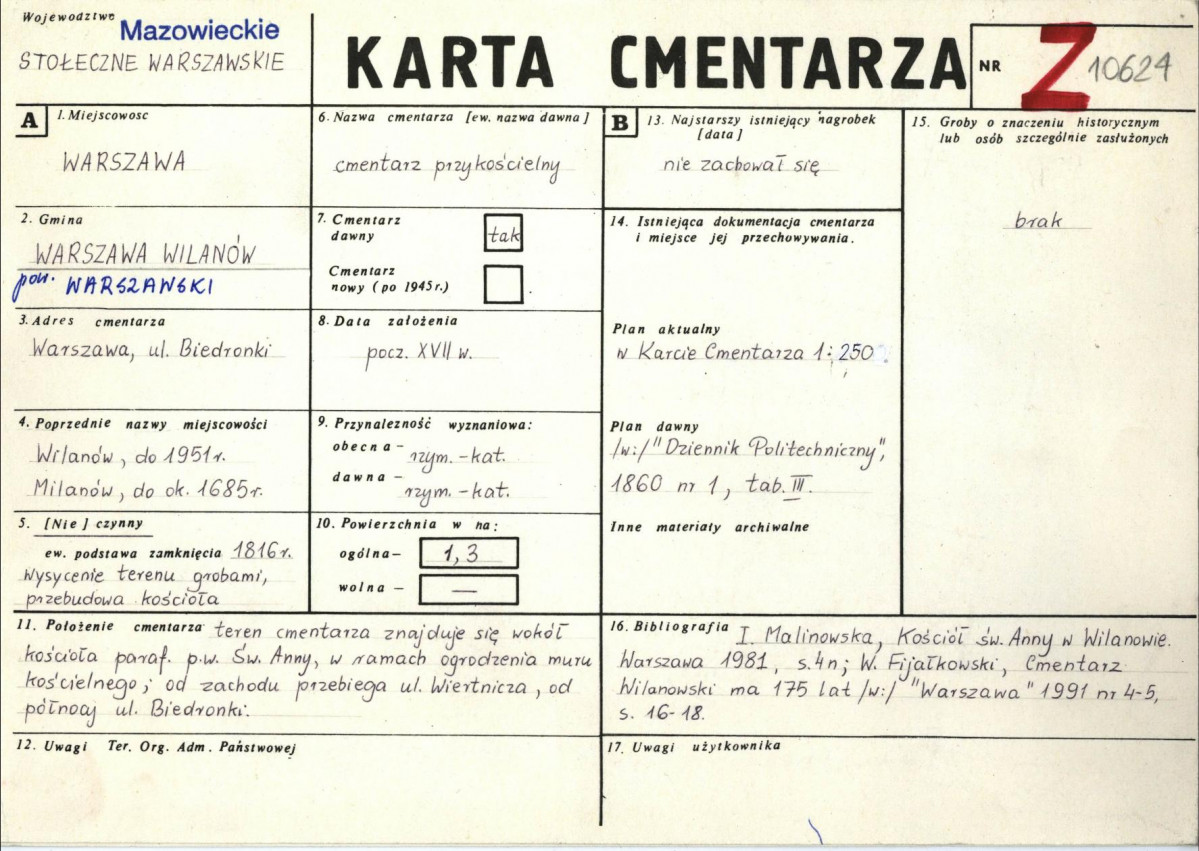 Województwo
Mazowieckie
STOŁECZNE WARSZAWSKIE
KARTA CMENTARZA
NR
Z 10624
A
1. Miejscowosc
WARSZAWA
2. Gmina
WARSZAWA WILANÓW
pow. WARSZAWSKI
3. Adres cmentarza
Warszawa, ul. Biedronki
4. Poprzednie nazwy miejscowości
Wilanów, do 1951r.
Milanów, do ok. 1685r.
5. [Nie] czynny
ew. podstawa zamknięcia 1816r.
wysycenie terenu grobami,
przebudowa kościoła
6. Nazwa cmentarza [ew. nazwa dawna]
cmentarz przykościelny
7. Cmentarz
dawny
tak
Cmentarz
nowy (po 1945r.)
8. Data założenia
pocz. XVII w.
9. Przynależność wyznaniowa:
obecna - rzym. - kat.
dawna - rzym. - kat.
10. Powierzchnia w ha:
ogólna - 1,3
wolna - —
11. Położenie cmentarza teren cmentarza znajduje się wokół
kościoła paraf. p.w. Św. Anny, w ramach ogrodzenia muru
kościelnego; od zachodu przebiega ul. Wiertnicza, od
północy ul. Biedronki.
12. Uwagi Ter. Org. Adm. Państwowej
B
13. Najstarszy istniejący nagrobek
[data]
nie zachował się
14. Istniejąca dokumentacja cmentarza
i miejsce jej przechowywania.
Plan aktualny
w Karcie Cmentarza 1:250
Plan dawny
/w:/ "Dziennik Politechniczny",
1860 nr 1, tab. III.
Inne materiały archiwalne
15. Groby o znaczeniu historycznym
lub osób szczególnie zasłużonych
brak
16. Bibliografia I. Malinowska, Kościół św. Anny w Wilanowie.
Warszawa 1981, s.4n; W. Fijałkowski, Cmentarz
Wilanowski ma 175 lat /w:/ "Warszawa" 1991 nr 4-5,
s. 16-18.
17. Uwagi użytkownika